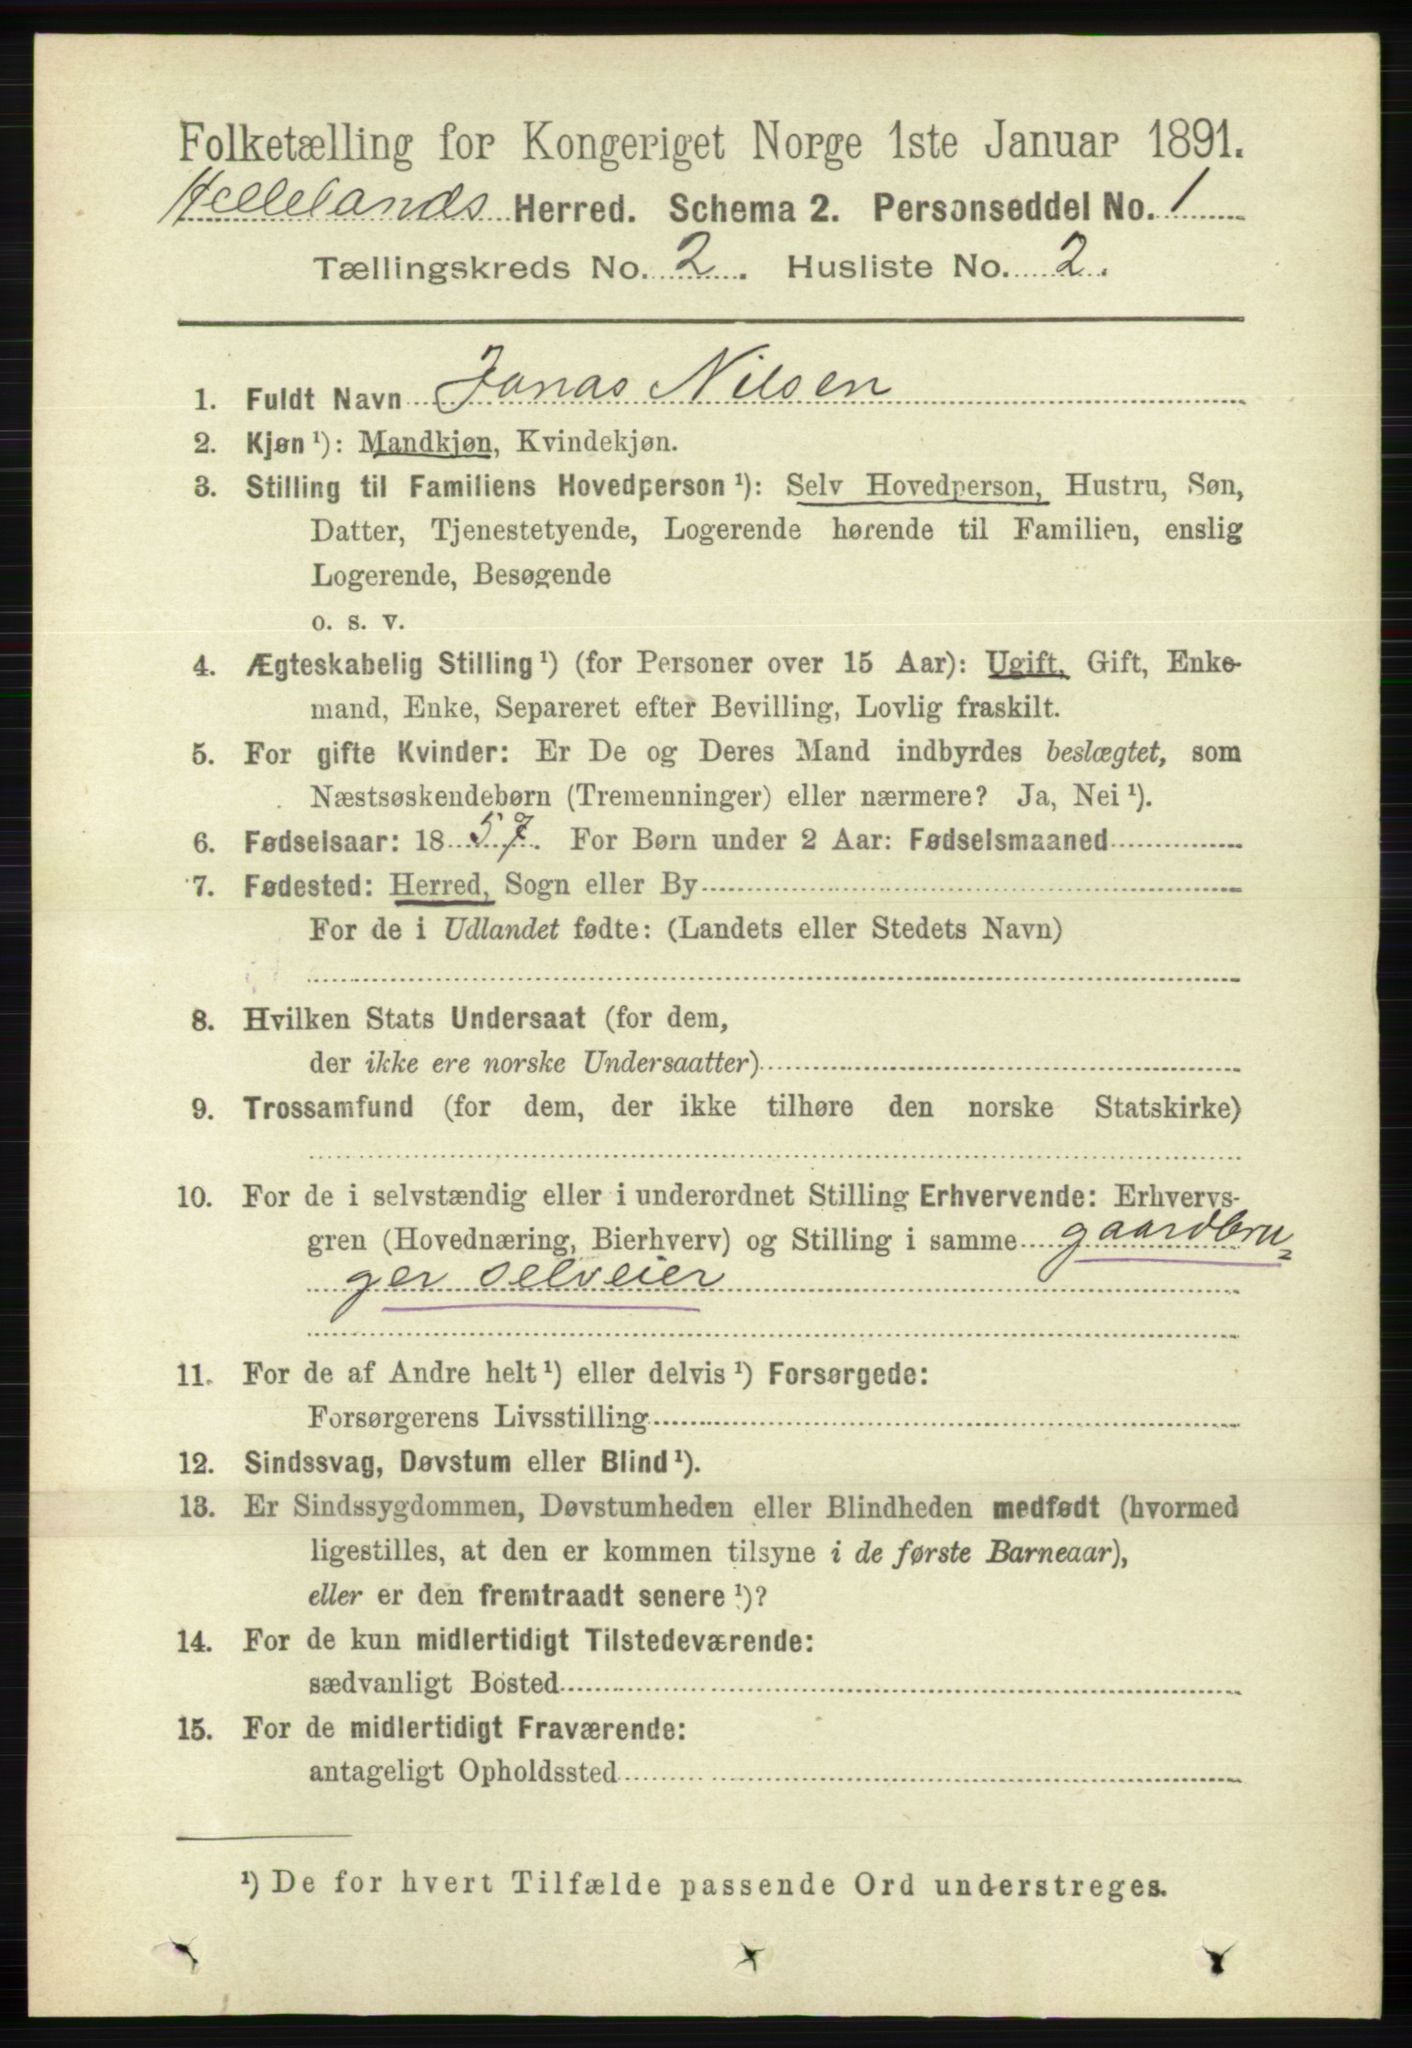 Folketælling for Kongeriget Norge 1ste Januar 1891.
Hellelands Herred. Schema 2. Personseddel No. 1
Tællingskreds No. 2. Husliste No. 2.
1. Fuldt Navn Jonas Nilsen
2. Kjøn ¹): Mandkjøn, Kvindekjøn.
3. Stilling til Familiens Hovedperson ¹): Selv Hovedperson, Hustru, Søn,
Datter, Tjenestetyende, Logerende hørende til Familien, enslig
Logerende, Besøgende
o. s. v.
4. Ægteskabelig Stilling ¹) (for Personer over 15 Aar): Ugift, Gift, Enke-
mand, Enke, Separeret efter Bevilling, Lovlig fraskilt.
5. For gifte Kvinder: Er De og Deres Mand indbyrdes beslægtet, som
Næstsøskendebørn (Tremenninger) eller nærmere? Ja, Nei ¹).
6. Fødselsaar: 1857. For Børn under 2 Aar: Fødselsmaaned
7. Fødested: Herred, Sogn eller By
For de i Udlandet fødte: (Landets eller Stedets Navn)
8. Hvilken Stats Undersaat (for dem,
der ikke ere norske Undersaatter)
9. Trossamfund (for dem, der ikke tilhøre den norske Statskirke)
10. For de i selvstændig eller i underordnet Stilling Erhvervende: Erhvervs-
gren (Hovednæring, Bierhverv) og Stilling i samme gaardbru=
ger selveier
11. For de af Andre helt ¹) eller delvis ¹) Forsørgede:
Forsørgerens Livsstilling
12. Sindssvag, Døvstum eller Blind ¹).
13. Er Sindssygdommen, Døvstumheden eller Blindheden medfødt (hvormed
ligestilles, at den er kommen tilsyne i de første Barneaar),
eller er den fremtraadt senere ¹)?
14. For de kun midlertidigt Tilstedeværende:
sædvanligt Bosted
15. For de midlertidigt Fraværende:
antageligt Opholdssted
¹) De for hvert Tilfælde passende Ord understreges.